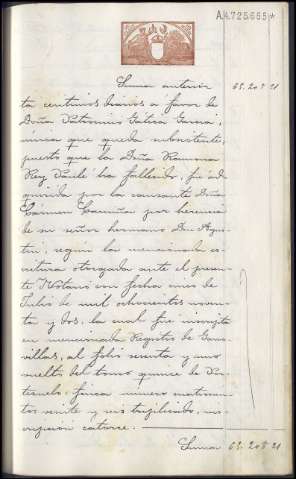 A.4.725.665*
Suma anterior 65.208 21
ta centimos diarios a favor de
Doña Patrocinio García,
única que queda subsistente,
puesto que la Doña Ramona
Rey ha fallecido, fué ad-
quirida por la causante Doña
Carmen por herencia
de su señor hermano Don Agus-
tin, según la mencionada es-
critura otorgada ante el presen-
te Notario con fecha once de
Julio de mil ochocientos noven-
ta y dos, la cual fue inscrita
en mencionado Registro de
al folio y uno
vuelto del tomo quince de
finca numero
tos veinte y seis triplicado, ins-
cripcion catorce.
Suma 65.208 21